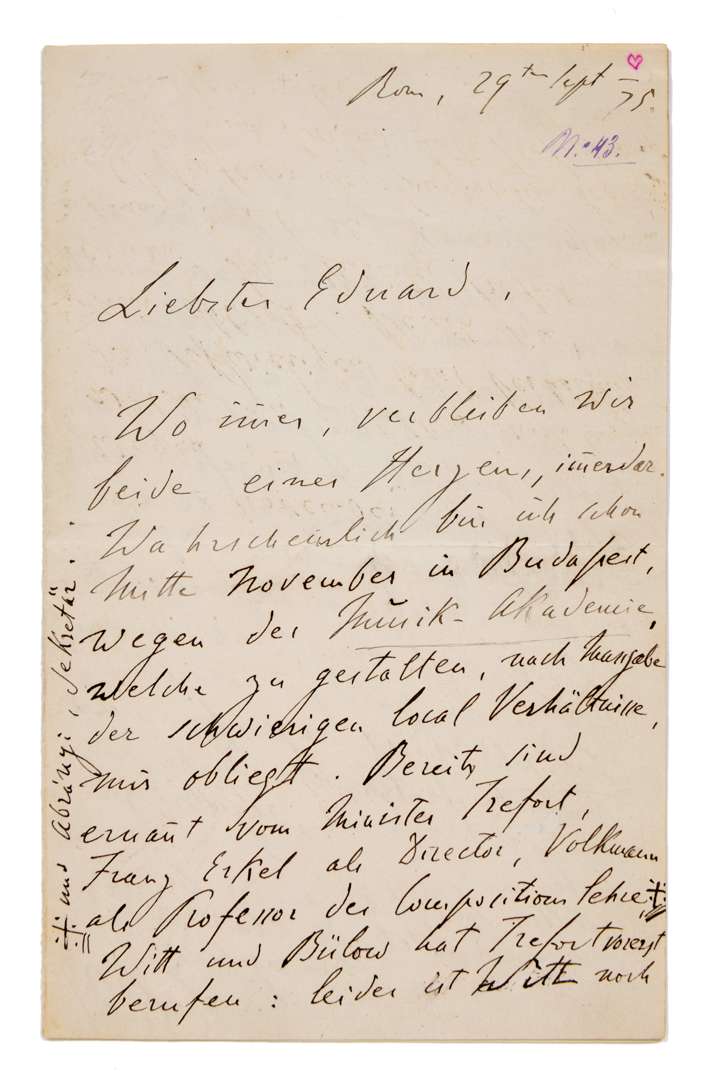 Rom, 29ten Sept –75.
No. 43.
Liebster Eduard,
Wo im̄er, verbleiben wir
beide eines Herzens, im̄erdar.
Wahrscheinlich bin ich schon
Mitte November in Budapest,
wegen der Musik-Akademie,
welche zu gestalten, nach Massgabe
der schwierigen local Verhältnisse,
mir obliegt. Bereits sind
ernan̄t vom Minister Trefort,
Franz Erkel als Director, Volkmann
als Professor der Compositions Lehre ‡
Witt und Bülow hat Trefort vorerst
berufen: leider ist Witt noch
‡ und Abrányi, Sekretär.